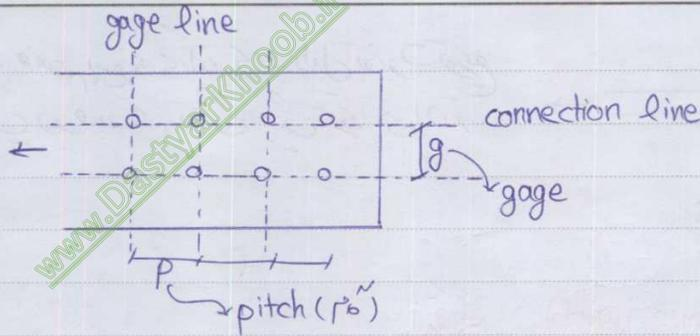 gage line
connection line
g
gage
P
pitch (گام)
www.DastyarKhoob.ir